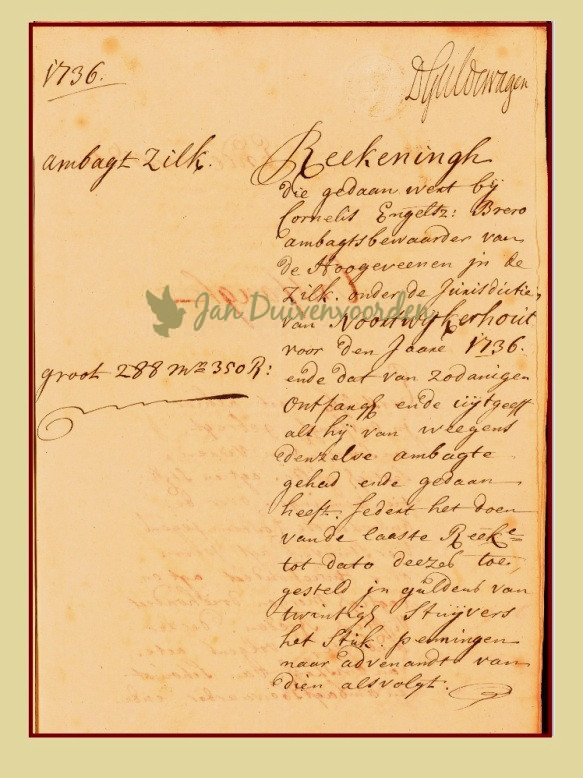 1736.
D Guldewagen
ambagt Zilk.
Reekeningh
die gedaan wert bij
Cornelis Engeltz: Brero
ambagtsbewaarder van
de Hoogeveenen jn de
Zilk. onder de Jurisdictie,
Jan Duivenvoorden
van Nootwijkerhout
voor den Jaare 1736.
groot 288 mz 350 R:
ende dat van zodanigen
Ontfangh ende uijtgeeff
als hij van weegens
denzelve ambagte
gehad ende gedaan
heeft. sedert het doen
van de laaste Reek:e
tot dato deezes toe,
gesteld jn guldens van
twintigh Stuijvers
het Stuk. penningen
naar advenandt van
dien alsvolgt.